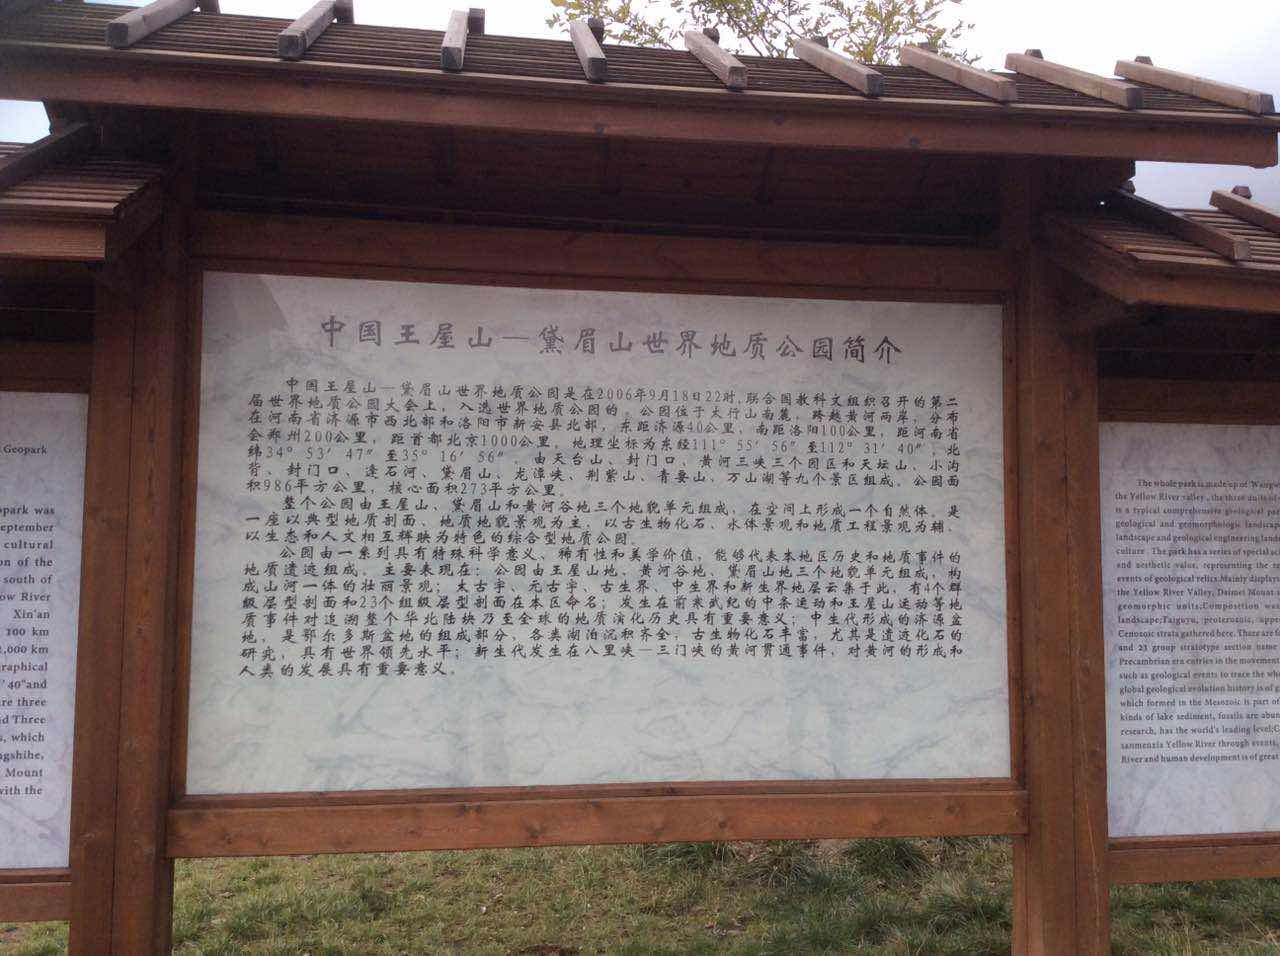 Geopark
opark was
eptember
cultural
on of the
south of
ow River
Xin'an
100 km
2,000 km
raphical
' 40"and
re three
nd Three
s, which
ngshihe,
Mount
with the
中国王屋山—黛眉山世界地质公园简介
中国王屋山—黛眉山世界地质公园是在2006年9月18日22时,联合国教科文组织召开的第二
届世界地质公园大会上，入选世界地质公园的。公园位于太行山南麓，跨越黄河两岸；分布
在河南省济源市西北部和洛阳市新安县北部，东距济源40公里，南距洛阳100公里，距河南省
会郑州200公里，距首都北京1000公里。地理坐标为东经111° 55′ 56″至112° 31′ 40″，北
纬34° 53′ 47″至35° 16′ 56″。由天台山、封门口、黄河三峡三个园区和天坛山、小沟
背、封门口、逢石河、黛眉山、龙潭峡、荆紫山、青要山、万山湖等九个景区组成。公园面
积986平方公里，核心面积273平方公里。
整个公园由王屋山、黛眉山和黄河谷地三个地貌单元组成，在空间上形成一个自然体。是
一座以典型地质剖面、地质地貌景观为主，以古生物化石、水体景观和地质工程景观为辅、
以生态和人文相互辉映为特色的综合型地质公园。
公园由一系列具有特殊科学意义，稀有性和美学价值，能够代表本地区历史和地质事件的
地质遗迹组成，主要表现在：公园由王屋山地、黄河谷地、黛眉山地三个地貌单元组成，构
成山河一体的壮丽景观；太古宇、元古宇、古生界、中生界和新生界地层云集于此，有4个群
级层型剖面和23个组级层型剖面在本区命名；发生在前寒武纪的中条运动和王屋山运动等地
质事件对追溯整个华北陆块乃至全球的地质演化历史具有重要意义；中生代形成的济源盆
地，是鄂尔多斯盆地的组成部分，各类湖泊沉积齐全，古生物化石丰富，尤其是遗迹化石的
研究，具有世界领先水平；新生代发生在八里峡—三门峡的黄河贯通事件，对黄河的形成和
人类的发展具有重要意义。
The whole park is made up of Wangw
the Yellow River valley, the three units of
is a typical comprehensive geological par
geological and geomorphologic landscap
landscape and geological engineering lande
culture. The park has a series of special sc
and aesthetic value, representing the re
events of geological relics.Mainly display
the Yellow River Valley, Daimei Mount
geomorphic units;Composition was
landscape;Taiguyu, proterozoic, uppe
Cenozoic strata gathered here. There are
and 23 group stratotype section name
Precambrian era entries in the movement
such as geological events to trace the who
global geological evolution history is of g
which formed in the Mesozoic is part of
kinds of lake sediment, fossils are abun
research, has the world's leading level;C
sanmenxia Yellow River through events,
River and human development is of great